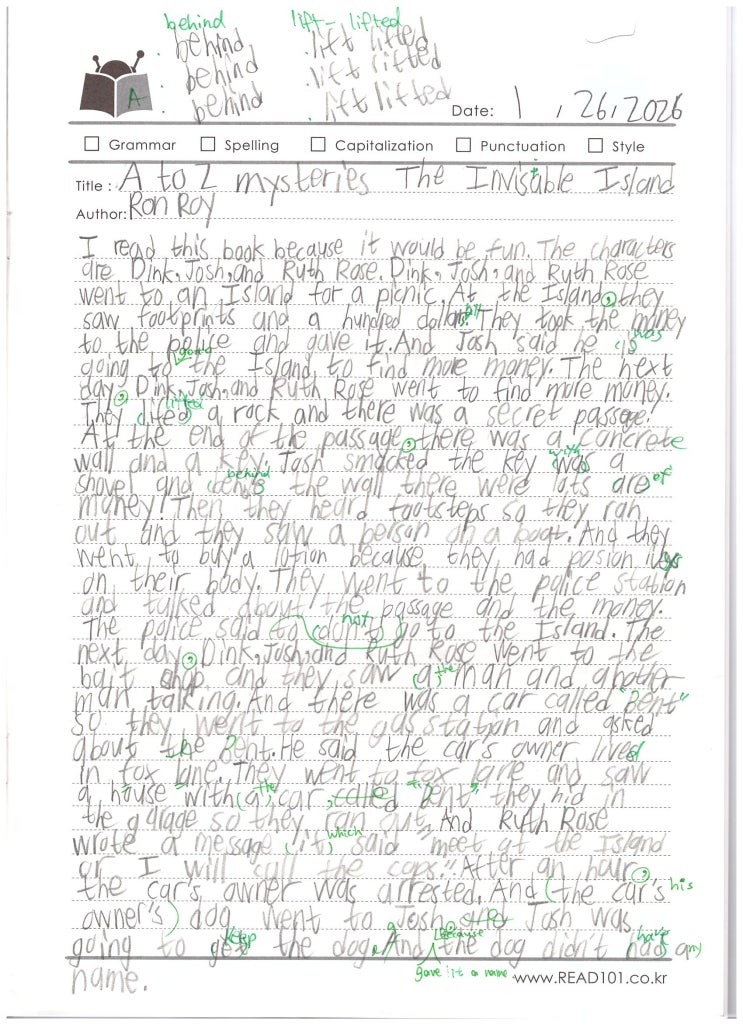 behind lift - lifted
behind lift lifted
behind lift lifted
behind lift lifted
A
Date: 1 , 26, 2026
Grammar Spelling Capitalization Punctuation Style
Title : A to Z mysteries The Invisible Island
Author: Ron Roy
I read this book because it would be fun. The characters
are Dink, Josh, and Ruth Rose. Dink, Josh, and Ruth Rose
went to an Island for a picnic. At the Island, they
saw footprints and a hundred dollars. bill They took the money
to the police and gave it. And Josh said he is was
going to the Island to find more money. The next
day, Dink, Josh, and Ruth Rose went to find more money.
They lifted a rock and there was a secret passage!
At the end of the passage, there was a concrete
wall and a key. Josh smacked the key was with a
shovel and behind the wall there were lots are of
money! Then they heard footsteps so they ran
out and they saw a person on a boat. And they
went to buy a lotion because they had posion ivys
on their body. They went to the police station
and talked about the passage and the money.
The police said to don't not go to the Island. The
next day, Dink, Josh, and Ruth Rose went to the
bait shop and they saw (a) the man and another
man talking. And there was a car called "Bent"
so they went to the gas station and asked
about the Bent. He said the car's owner lived
in fox lane. They went to fox lane and saw
a house with (a) the car, called "Bent", they hid in
the garage so they ran out. And Ruth Rose
wrote a message (it) which said "meet at the Island
or I will call the cops." After an hour,
the car's owner was arrested. And (the car's his
owner's) dog went to Josh. Josh was
going to keep the dog. And because the dog didn't have any
gave it a name
name.
www.READ101.co.kr